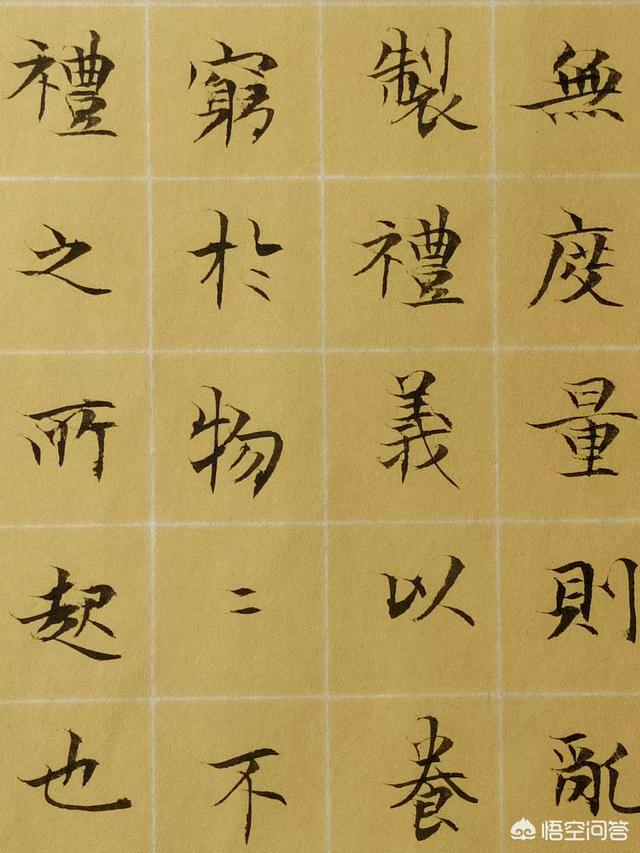 無度量則亂
製禮義以養
窮於物二不
禮之所起也
悟空问答